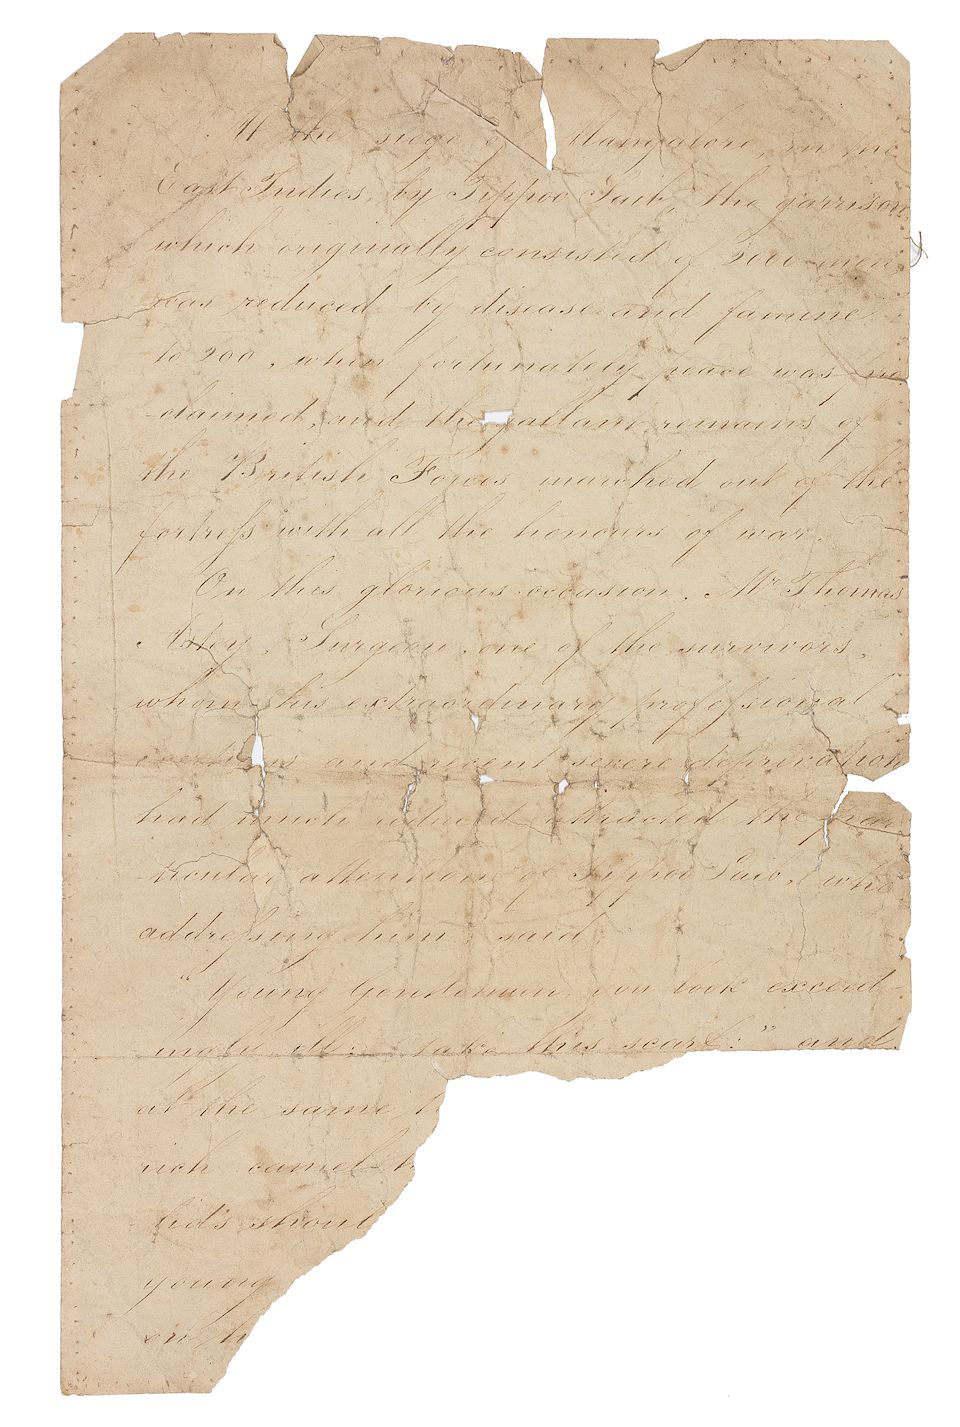 At the siege of Mangalore, in the
East Indies, by Tippoo Saib, the garrison
which originally consisted of 2000 men
was reduced by disease and famine
to 200, when fortunately peace was pro
claimed, and the gallant remains of
the British Forces marched out of the
fortress with all the honours of war.
On this glorious occasion, Mr Thomas
Surgeon, one of the survivors,
whom his extraordinary professional
exertions and recent severe deprivation
had much reduced attracted the par
ticular attention of Tippoo Saib, who
addressing him, said
"Young Gentleman, you look exceed-
ingly ill: take this scarf:" and
at the same
rich camel-h
lid's shoul
young
on h